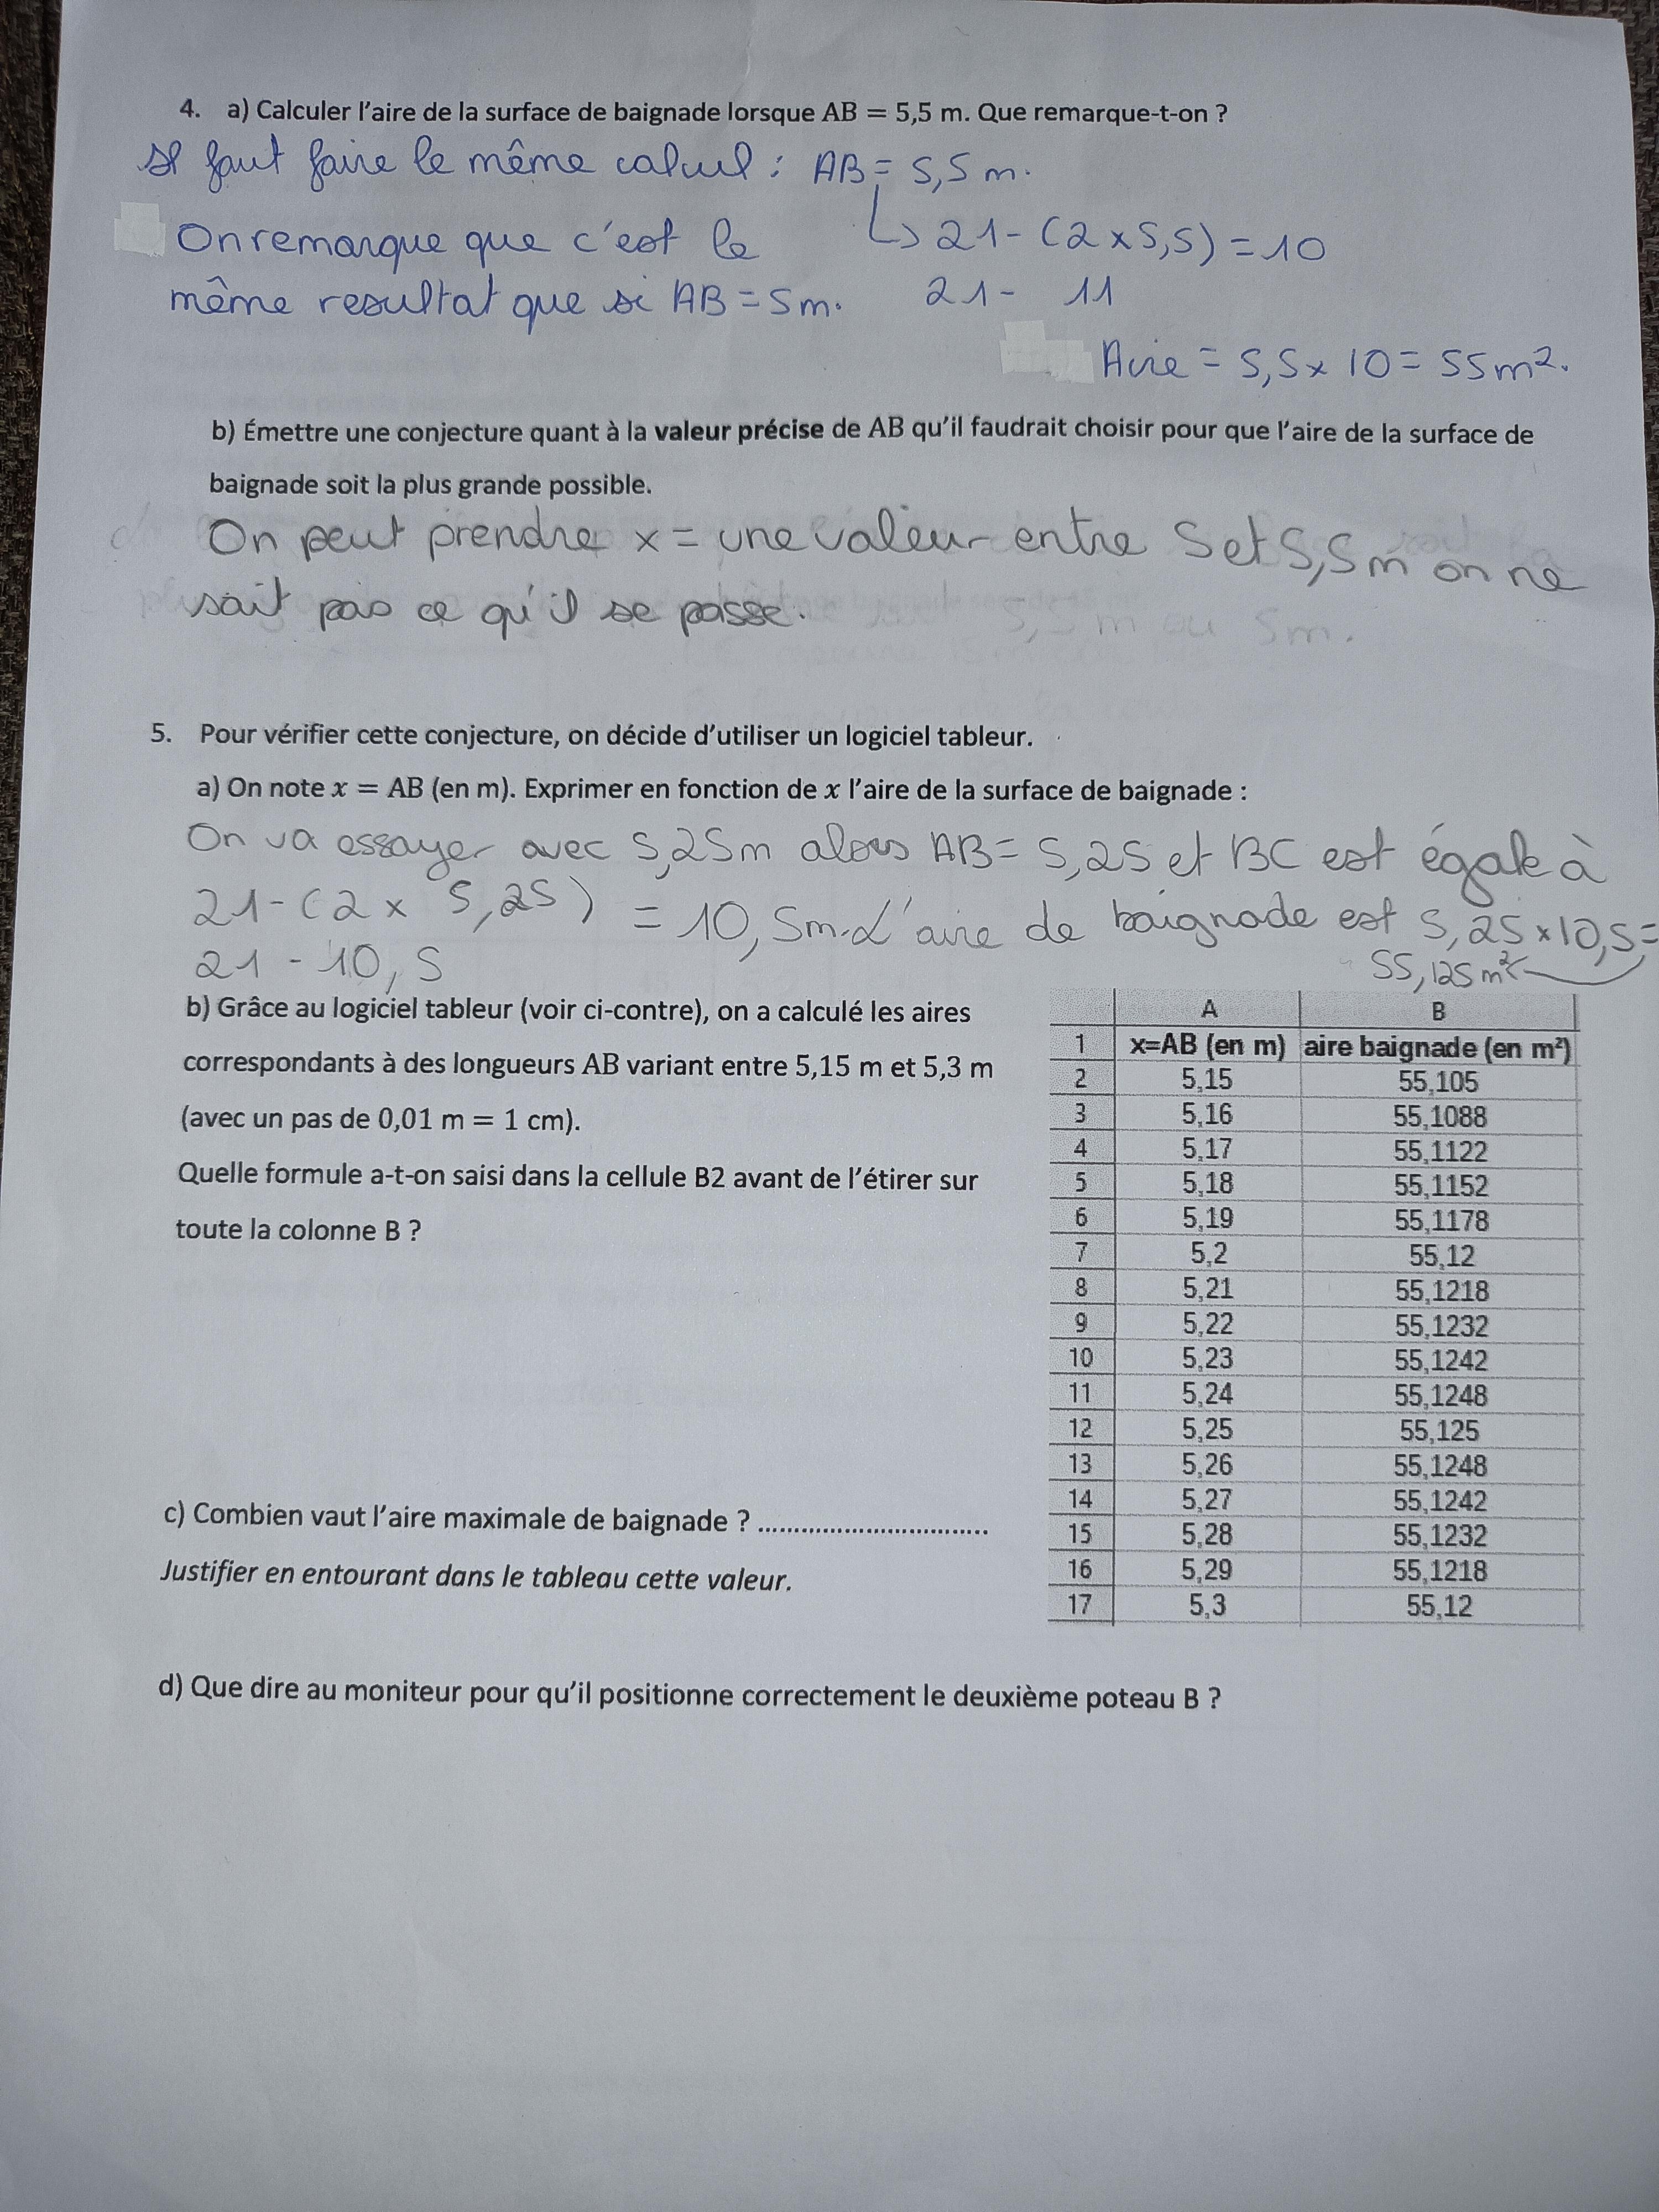 4. a) Calculer l'aire de la surface de baignade lorsque AB = 5,5 m. Que remarque-t-on ?
Il faut faire le même calcul : AB = 5,5 m.
↳ 21 - (2 x 5,5) = 10
On remarque que c'est le
même resultat que si AB = 5m.
21 - 11
Aire = 5,5 x 10 = 55m².
b) Émettre une conjecture quant à la valeur précise de AB qu'il faudrait choisir pour que l'aire de la surface de
baignade soit la plus grande possible.
On peut prendre x = une valeur entre 5 et 5,5m on ne
sait pas ce qu'il se passe.
5,5 m ou 5m.
5. Pour vérifier cette conjecture, on décide d'utiliser un logiciel tableur.
a) On note x = AB (en m). Exprimer en fonction de x l'aire de la surface de baignade :
On va essayer avec 5,25m alors AB = 5,25 et BC est égale à
21 - (2 x 5,25) = 10,5m. L'aire de baignade est 5,25 x 10,5 =
21 - 10,5
55,125 m²
b) Grâce au logiciel tableur (voir ci-contre), on a calculé les aires
correspondants à des longueurs AB variant entre 5,15 m et 5,3 m
(avec un pas de 0,01 m = 1 cm).
Quelle formule a-t-on saisi dans la cellule B2 avant de l'étirer sur
toute la colonne B ?
A B
1 x=AB (en m) aire baignade (en m²)
2 5,15 55,105
3 5,16 55,1088
4 5,17 55,1122
5 5,18 55,1152
6 5,19 55,1178
7 5,2 55,12
8 5,21 55,1218
9 5,22 55,1232
10 5,23 55,1242
11 5,24 55,1248
12 5,25 55,125
13 5,26 55,1248
14 5,27 55,1242
15 5,28 55,1232
16 5,29 55,1218
17 5,3 55,12
c) Combien vaut l'aire maximale de baignade ? .................................
Justifier en entourant dans le tableau cette valeur.
d) Que dire au moniteur pour qu'il positionne correctement le deuxième poteau B ?